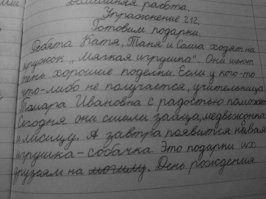 Домашняя работа.
Упражнение 212.
Готовим подарки.
Ребята Катя, Таня и Саша ходят на
кружок „Мягкая игрушка". Они
хорошие поделки. Если у кого-то
что-либо не получается, учительница
Тамара Ивановна с радостью
Сегодня они сшили зайца, медвежонка
и лисицу. А завтра появится новая
игрушка - собачка. Это подарки их
друзьям на День рождения